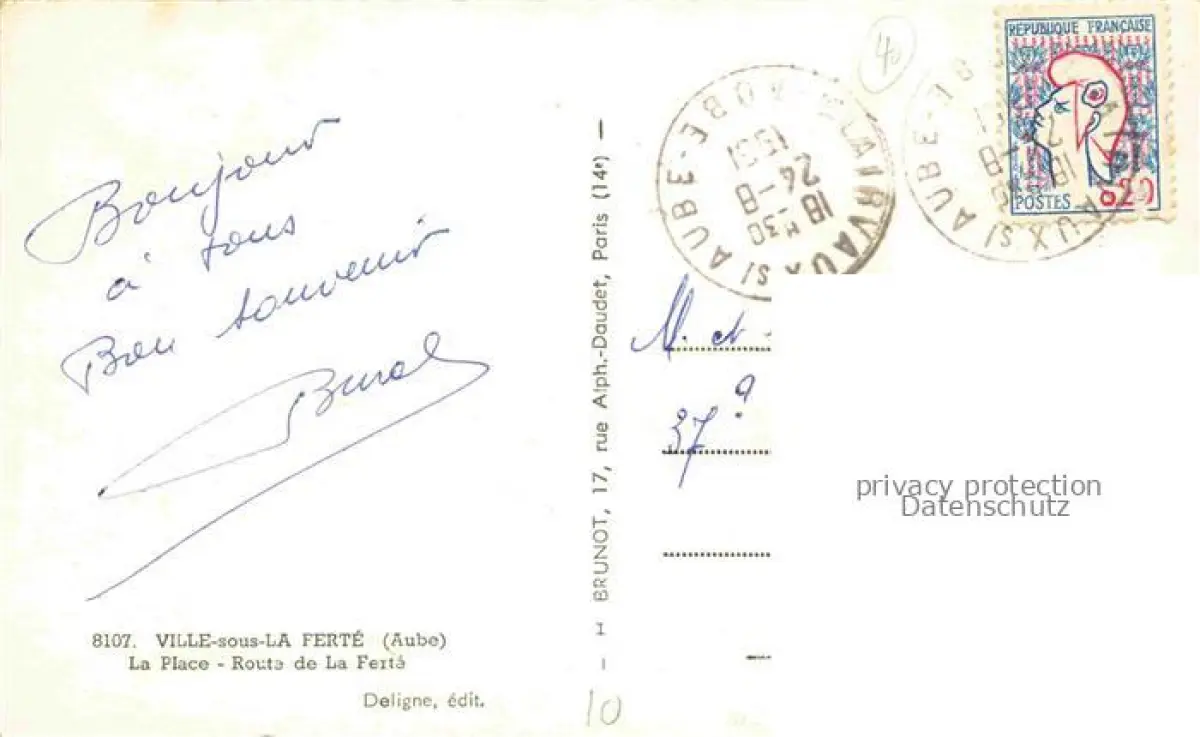 Bonjour
à tous
Bon souvenir
8107. VILLE-sous-LA FERTÉ (Aube)
La Place - Route de La Ferté
Deligne, édit.
I BRUNOT, 17, rue Alph.-Daudet, Paris (14e)
40
CLAIRVAUX S/ AUBE - AUBE
18 H30
24 - 8
RÉPUBLIQUE FRANÇAISE
POSTES 0.20
M. et
37
privacy protection
Datenschutz
10